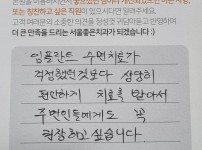 또는 칭찬하고 싶은 직원이 있으시다면 알려주세요.
고객 여러분의 소중한 의견을 정성껏 귀담아듣고 반영하여
더 큰 만족을 드리는 서울좋은치과가 되겠습니다 :)
임플란트 수면치료가
걱정했던것보다 상당히
편안하게 치료를 받아서
주변인들에게도 꼭
권장하고 싶습니다.